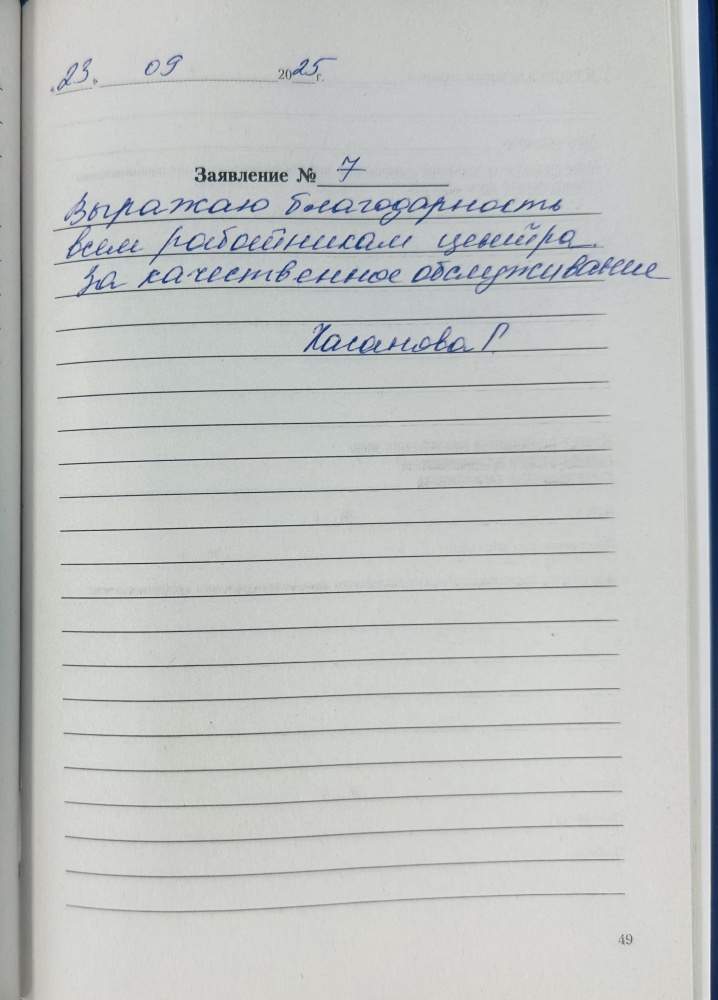 «23» 09 2025 г.
Заявление № 7
Выражаю благодарность
всем работникам центра
за качественное обслуживание
Хасанова Г.
49